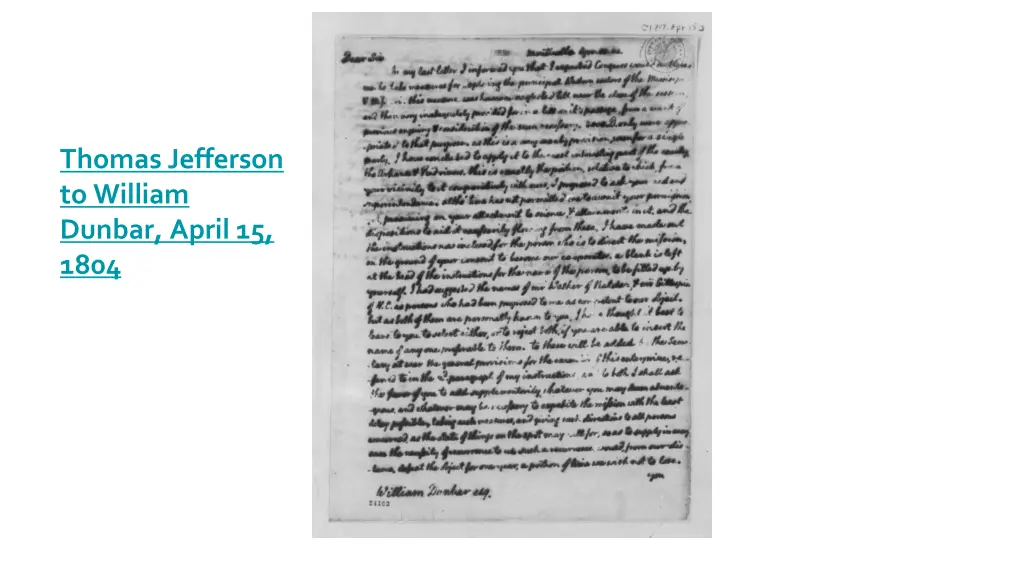 Thomas Jefferson
to William
Dunbar, April 15,
1804
Dear Sir Monticello
In my last letter I informed you that I expected Congress would
me to take measures for exploring the principal Western waters of the
this measure was however neglected till near the close of the
and then very inadequately provided for in a bill on it's passage, from a want of
enquiry & consideration of the sum necessary. only were
to that purpose. as this is a very scanty provision, even for a single
party, I have concluded to apply it to the most interesting part of the country,
the Arkansa & Red rivers. this is exactly the portion, relative to which, from
your vicinity to it comparatively with ours, I proposed to ask your aid and
superintendance. altho' time has not permitted me to await your permission,
presuming on your attachment to science, & attainments in it, and the
dispositions to aid it necessarily flowing from these, I have made out
the instructions now inclosed for the person who is to direct the mission,
on the ground of your consent to become our cooperator. a blank is left
at the head of the instructions for the name of the person, to be filled up by
yourself. I had suggested the names of mr Walker of Natchez, & mr Gillespie
of N.C. as persons who had been proposed to me as competent to our object.
but as both of them are personally known to you, I have thought it best to
leave to you to select either, or to reject both, if you are able to insert the
name of any one preferable to them. to these will be added
the general provisions for the of this enterprise, re-
ferred to in the 2d paragraph of my instructions to both I shall ask
the favor of you to add supplementorily, whatever you may deem advanta-
geous, and whatever may be necessary to expedite the mission with the least
delay possible, taking such measures, and giving such directions to all persons
concerned, as the state of things on the spot may call for, so as to supply in any
case the necessity of recurrence to us such a recurrence would, from our dis-
tance, defeat the object for one year, a portion of time we wish not to lose.
you
William Dunbar esq.